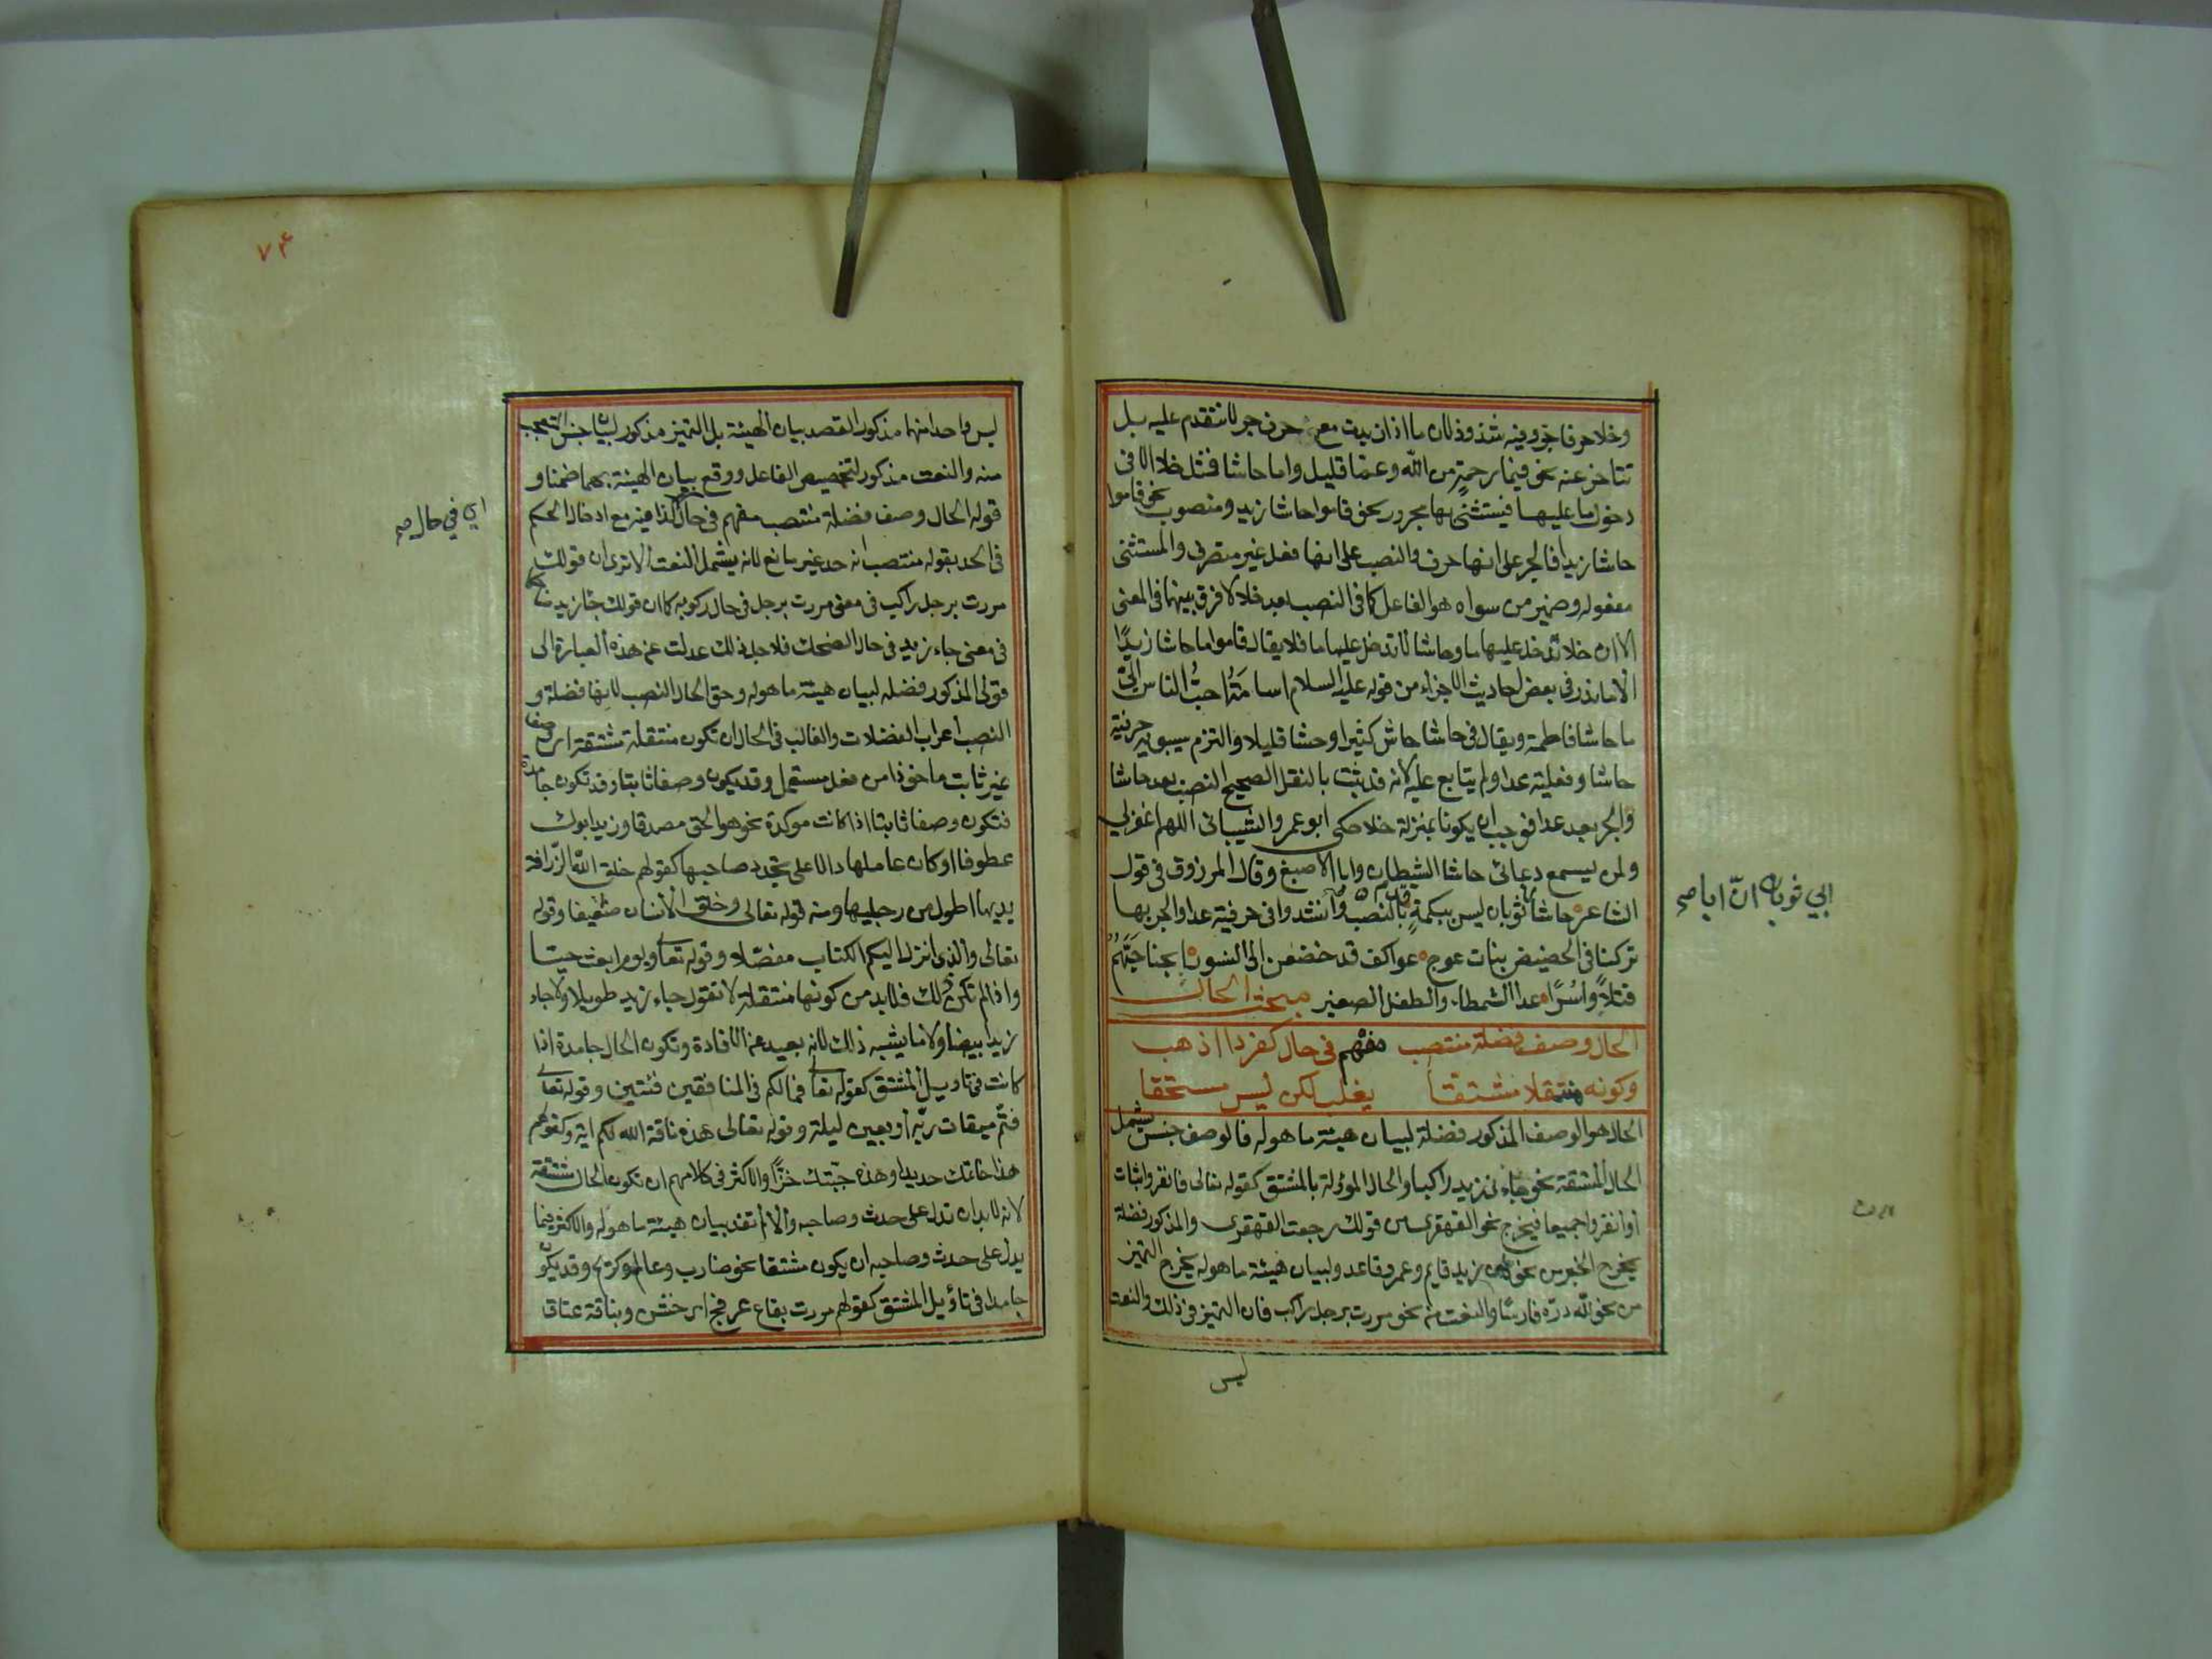 وخلا حرفا جر وفيه شذوذ لان ما اذا زيدت مع حرف جر لا تتقدم عليه بل
تتاخر عنه نحو فبما رحمة من الله وعما قليل واما حاشا فمثل خلا الا في
دخول ما عليها فيستثنى بها مجرور نحو قاموا حاشا زيد ومنصوب نحو قاموا
حاشا زيدا فالجر على انها حرف والنصب على انها فعل غير متصرف والمستثنى
مفعوله وضمير من سواه هو الفاعل كما في النصب بعد خلا لا فرق بينهما في المعنى
الا ان خلا تدخل عليها ما وحاشا لا تدخل عليها ما فلا يقال قاموا ما حاشا زيدًا
الا ما ندر في بعض احاديث الاجزاء من قوله عليه السلام اسامةُ احبُّ الناس اليّ
ما حاشا فاطمة ويقال في حاشا حاش كثيرا وحشا قليلا والتزم سيبويه حرفية
حاشا وفعلية عدا ولم يتابع عليه لانه قد ثبت بالنقل الصحيح النصب بعد حاشا
والجر بعد عدا فوجب ان يكونا بمنزلة خلا حكى ابو عمرو الشيباني اللهم اغفر لي
ولمن يسمع دعائي حاشا الشيطان وابا الاصبغ وقال المرزوقي في قول
الشاعر حاشا ابا ثوبان ليس ببكمةٍ فدم بالنصب وانشدوا في حرفية عدا والجر بها
تركنا في الحضيض بنات عوج عواكف قد خضعن الى النسور ابحنا حيَّهُم
قتلاً واسرًا عدا الشمطاء والطفل الصغير مبحث الحال
الحال وصف فضلة منتصب مفهم في حال كفردا اذهب
وكونه منتقلا مشتقا يغلب لكن ليس مستحقا
الحال هو الوصف المذكور فضلة لبيان هيئة ما هو له فالوصف جنس يشمل
الحال المشتقة نحو جاء زيد راكبا والحال المؤولة بالمشتق كقوله تعالى فانفروا ثبات
او انفروا جميعا فيخرج نحو القهقرى من قولك رجعت القهقرى والمذكور فضلة
يخرج الخبر من نحو زيد قايم وعمرو قاعد ولبيان هيئة ما هو له يخرج التميز
من نحو لله درّه فارسًا والنعت من نحو مررت برجل راكب فان التميز في ذلك والنعت
ليس
ابي ثوبان انّ ابا صح
٧٤
ليس واحد منهما مذكور القصد بيان الهيئة بل التميز مذكور لبيان جنس المتعجب
منه والنعت مذكور لتخصيص الفاعل ووقع بيان الهيئة بهما ضمنا و
قوله الحال وصف فضلة منتصب مفهم في حال كذا فيه مع ادخال الحكم
في الحد بقوله منتصب انه حد غير مانع لانه يشمل النعت الا ترى ان قولك
مررت برجل راكب في معنى مررت برجل في حال ركوبه كما ان قولك جاء زيد ضاحكا
في معنى جاء زيد في حال الضحك فلاجل ذلك عدلت عن هذه العبارة الى
قولي المذكور فضله لبيان هيئة ما هو له وحق الحال النصب لانها فضلة و
النصب اعراب الفضلات والغالب في الحال ان تكون منتقلة مشتقة اى وصفا
غير ثابت ماخوذا من فعل مستعمل وقد يكون وصفا ثابتا وقد تكون جامدة
فتكون وصفا ثابتا اذا كانت موكدة نحو هو الحق مصدقا وزيد ابوك
عطوفا او كان عاملها دالا على تجدد صاحبها كقولهم خلق الله الزرافة
يديها اطول من رجليها ومنه قوله تعالى وخلق الانسان ضعيفا وقوله
تعالى والذي انزل اليكم الكتاب مفصّلا وقوله تعالى ويوم ابعث حيا
واذا لم تكن كذلك فلا بد من كونها منتقلة لا تقول جاء زيد طويلا ولا جاء
زيد ابيض ولا ما يشبه ذلك لانه بعيد عن الافادة وتكون الحال جامدة اذا
كانت في تاويل المشتق كقوله تعالى فما لكم في المنافقين فئتين وقوله تعالى
فتمّ ميقات ربّه اربعين ليلة وقوله تعالى هذه ناقة الله لكم اية وكقولهم
هذا خاتمك حديدا وهذه جبّتك خزًّا والاكثر في كلامهم ان تكون الحال مشتقة
لانه لا بد ان تدل على حدث وصاحبه والا لم تفد بيان هيئة ما هو له والاكثر فيما
يدل على حدث وصاحبه ان يكون مشتقا نحو ضارب وعالم وكريم وقد يكون
جامدا في تاؤيل المشتق كقولهم مررت بقاع عرفج اى خشن وبناقة علاة
اي في حال صح